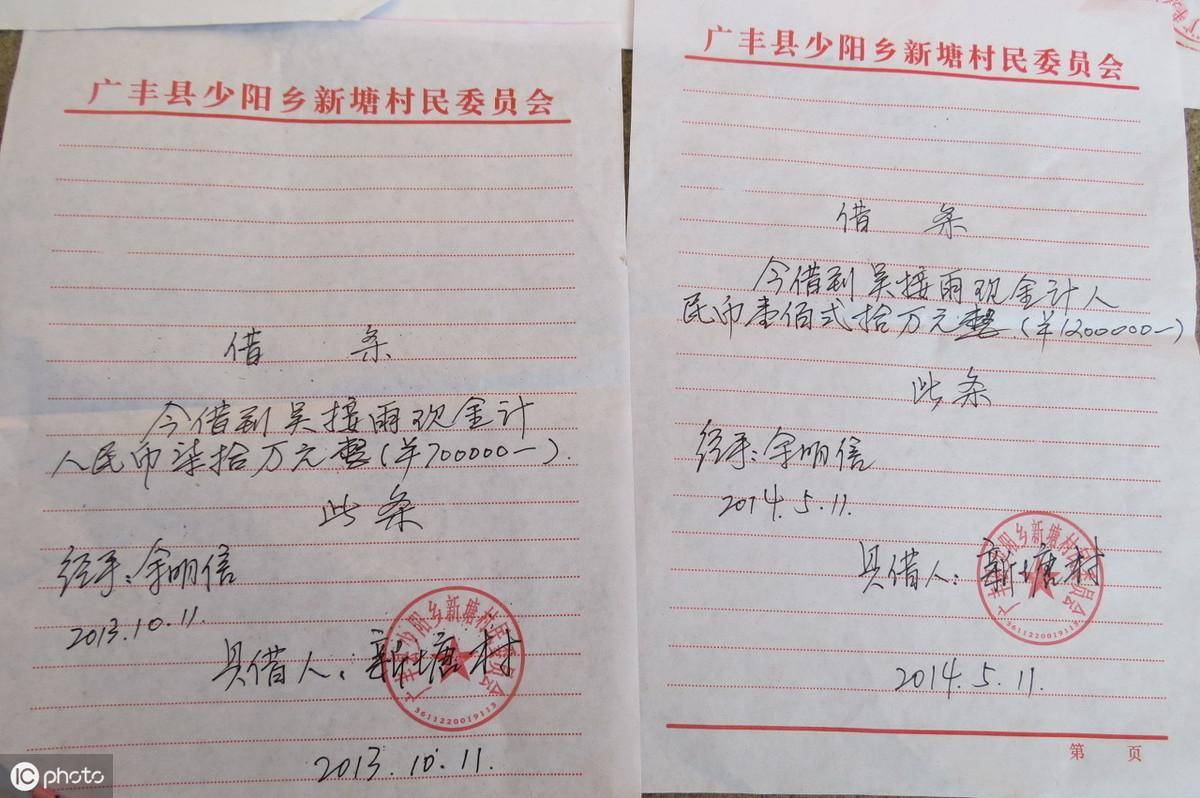 广丰县少阳乡新塘村民委员会
借 条
今借到吴接雨现金计
人民币柒拾万元整(羊700000一).
此条
经手:余明信
2013.10.11.
具借人:新塘村
广丰县少阳乡新塘村民委员会
3611220019113
2013.10.11.
广丰县少阳乡新塘村民委员会
借 条
今借到吴接雨现金计人
民币壹佰弍拾万元整(羊1200000一)
此条
经手:余明信
2014.5.11.
具借人:新塘村
广丰县少阳乡新塘村民委员会
3611220019113
2014.5.11.
第 页
IC photo